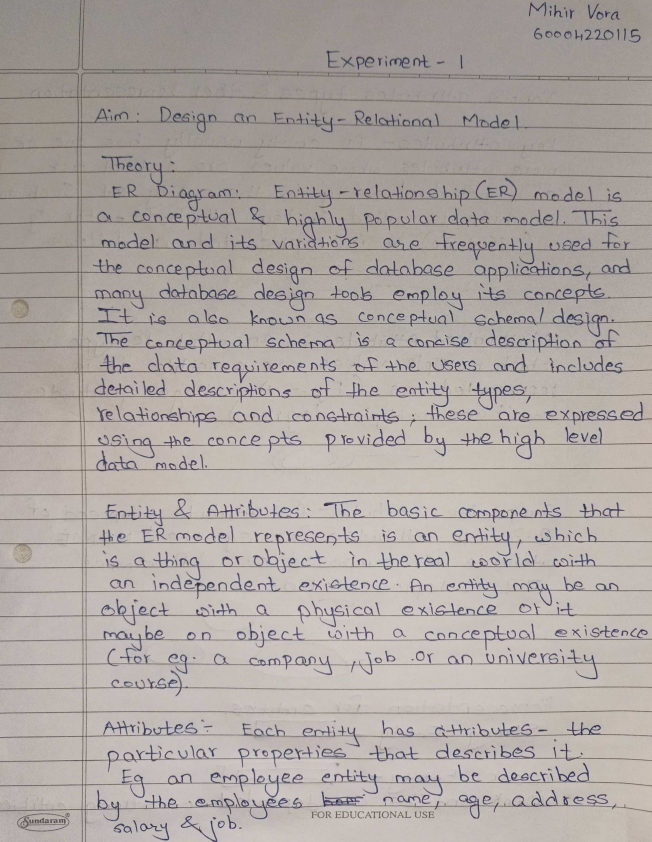 Mihir Vora
60004220115
Experiment - 1
Aim: Design an Entity-Relational Model.
Theory:
ER Diagram: Entity-relationship (ER) model is
a conceptual & highly popular data model. This
model and its variations are frequently used for
the conceptual design of database applications, and
many database design tools employ its concepts.
It is also known as conceptual schema/design.
The conceptual schema is a concise description of
the data requirements of the users and includes
detailed descriptions of the entity types,
relationships and constraints; these are expressed
using the concepts provided by the high level
data model.
Entity & Attributes: The basic components that
the ER model represents is an entity, which
is a thing or object in the real world with
an independent existence. An entity may be an
object with a physical existence or it
maybe on object with a conceptual existence
(for eg. a company, job or an university
course).
Attributes:- Each entity has attributes - the
particular properties that describes it.
Eg an employee entity may be described
by the employees name, age, address,
salary & job.
Sundaram
FOR EDUCATIONAL USE